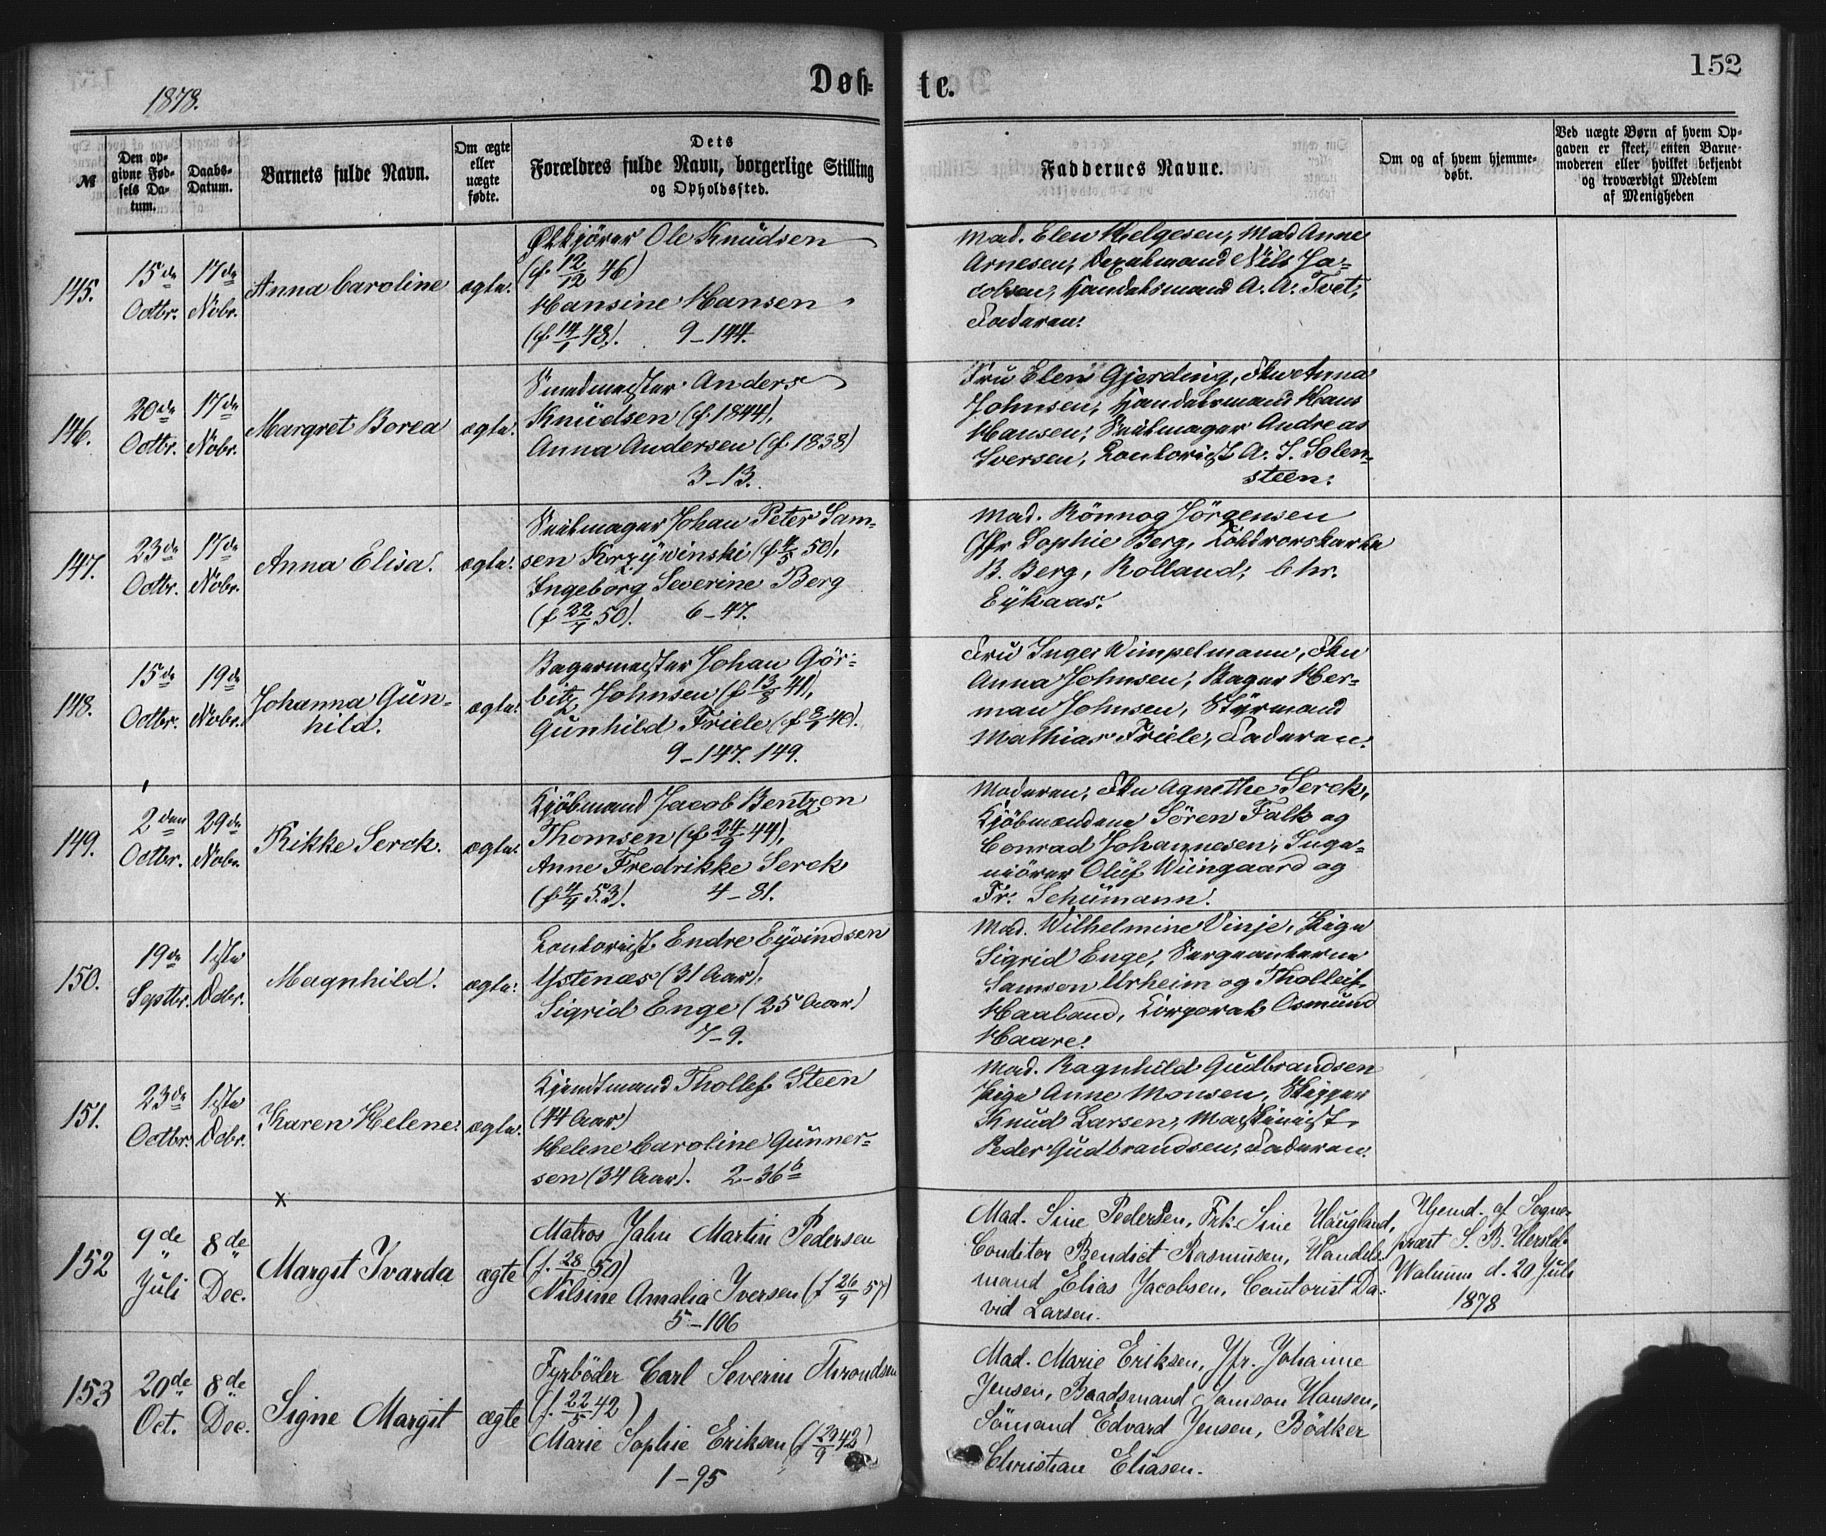 1878.
Døb-
te.
152
№
Den op-
givne Fød-
sels Da-
tum.
Daabs-
Datum.
Barnets fulde Navn.
Om ægte
eller
uægte
fødte.
Dets
Forældres fulde Navn, borgerlige Stilling
og Opholdssted.
Faddernes Navne.
Om og af hvem hjemme-
døbt.
Ved uægte Børn af hvem Op-
gaven er skeet, enten Barne-
moderen eller hvilket bekjendt
og troværdigt Medlem
af Menigheden
145.
15de
Octbr.
17de
Nobr.
Anna Caroline
ægte.
Ølkjører Ole Knudsen
(f. 12/12 46)
Hansine Hansen
(f. 14/1 48). 9-144.
Mad. Elen Helgesen, Mad Anne
Arnesen, Nils Ja-
cobsen, Handelsmand A. A. Tvet,
Faderen.
146.
20de
Octbr.
17de
Nobr.
Margret Borea
ægte.
Smedmester Anders
Knudsen (f. 1844),
Anna Andersen (f. 1838)
3-13.
Fru Elen Gjerding, Anna
Johnsen, Handelsmand Hans
Hansen, Seilmager Andreas
Iversen, Contorist A. J. Solen-
steen.
147.
23de
Octbr.
17de
Nobr.
Anna Elisa.
ægte.
Seilmager Johan Peter Sam-
sen Krzywinski (f. 4/5 50),
Ingeborg Severine Berg
(f. 22/1 50). 6-47.
Mad. Rönnog Jörgensen
Jfr Sophie Berg,
B. Berg, Rolland, Chr.
Eykaas.
148.
15de
Octbr.
19de
Nobr.
Johanna Gun-
hild.
ægte.
Bagermester Johan Gör-
bitz Johnsen (f. 13/8 41),
Gunhild Friele (f. 3/1 40).
9-147. 149.
Fru Inger Wimpelmann,
Anna Johnsen, Bager Her-
man Johnsen, Styrmand
Mathias Friele, Faderen.
149.
2den
Octbr.
29de
Nobr.
Rikke Serck.
ægte.
Kjøbmand Jacob Bentzon
Thomsen (f. 24/9 44),
Anne Fredrikke Serck
(f. 4/4 53). 4-81.
Moderen, Agnethe Serck,
Kjøbmændene Sören Falk og
Conrad Johannesen, Inge-
niörer Oluf Wiingaard og
Fr. Schumann.
150.
19de
Septbr.
1ste
Dcbr.
Magnhild.
ægte.
Contorist Endre Eyvindsen
Ystenæs (31 Aar),
Sigrid Enge (25 Aar)
7-9.
Mad. Wilhelmine Vinje, Pige
Sigrid Enge, Sergeanterne
Samson Urheim og Thollef
Haaland, Korporal Osmund
Haare.
151.
23de
Octbr.
1ste
Dcbr.
Karen Helene.
ægte.
Kjendtmand Thollef Steen
(44 Aar)
Helene Caroline Gunner-
sen (34 Aar). 2-36b
Mad. Ragnhild Gudbrandsen
Pige Anne Monsen, Skipper
Knud Larsen, Maskinist
Peder Gudbrandsen, Faderen.
x
152
9de
Juli
8de
Dec.
Margit Ivarda
ægte
Matros Jahn Martin Pedersen
(f. 28/ 50)
Nilsine Amalia Iversen (f 26/9 57)
5-106
Mad. Sine Pedersen, Frk. Sine Haugland,
Conditor Bendict Rasmusen, Handels-
mand Elias Jacobsen, Contorist Da-
vid Larsen.
Hjemd. af Sogne-
præst S. B. Hersleb-
Walnum d. 20 Juli
1878
153
20de
Oct.
8de
Dec.
Signe Margit
ægte
Fyrböder Carl Severin Throndsen
(f. 22/5 42)
Marie Sophie Eriksen (f 29/9 42)
1-95
Mad. Marie Eriksen, Jfr. Johanne
Jensen, Baadsmand Samson Hansen,
Sömand Edvard Jensen, Bödker
Christian Eliasen.